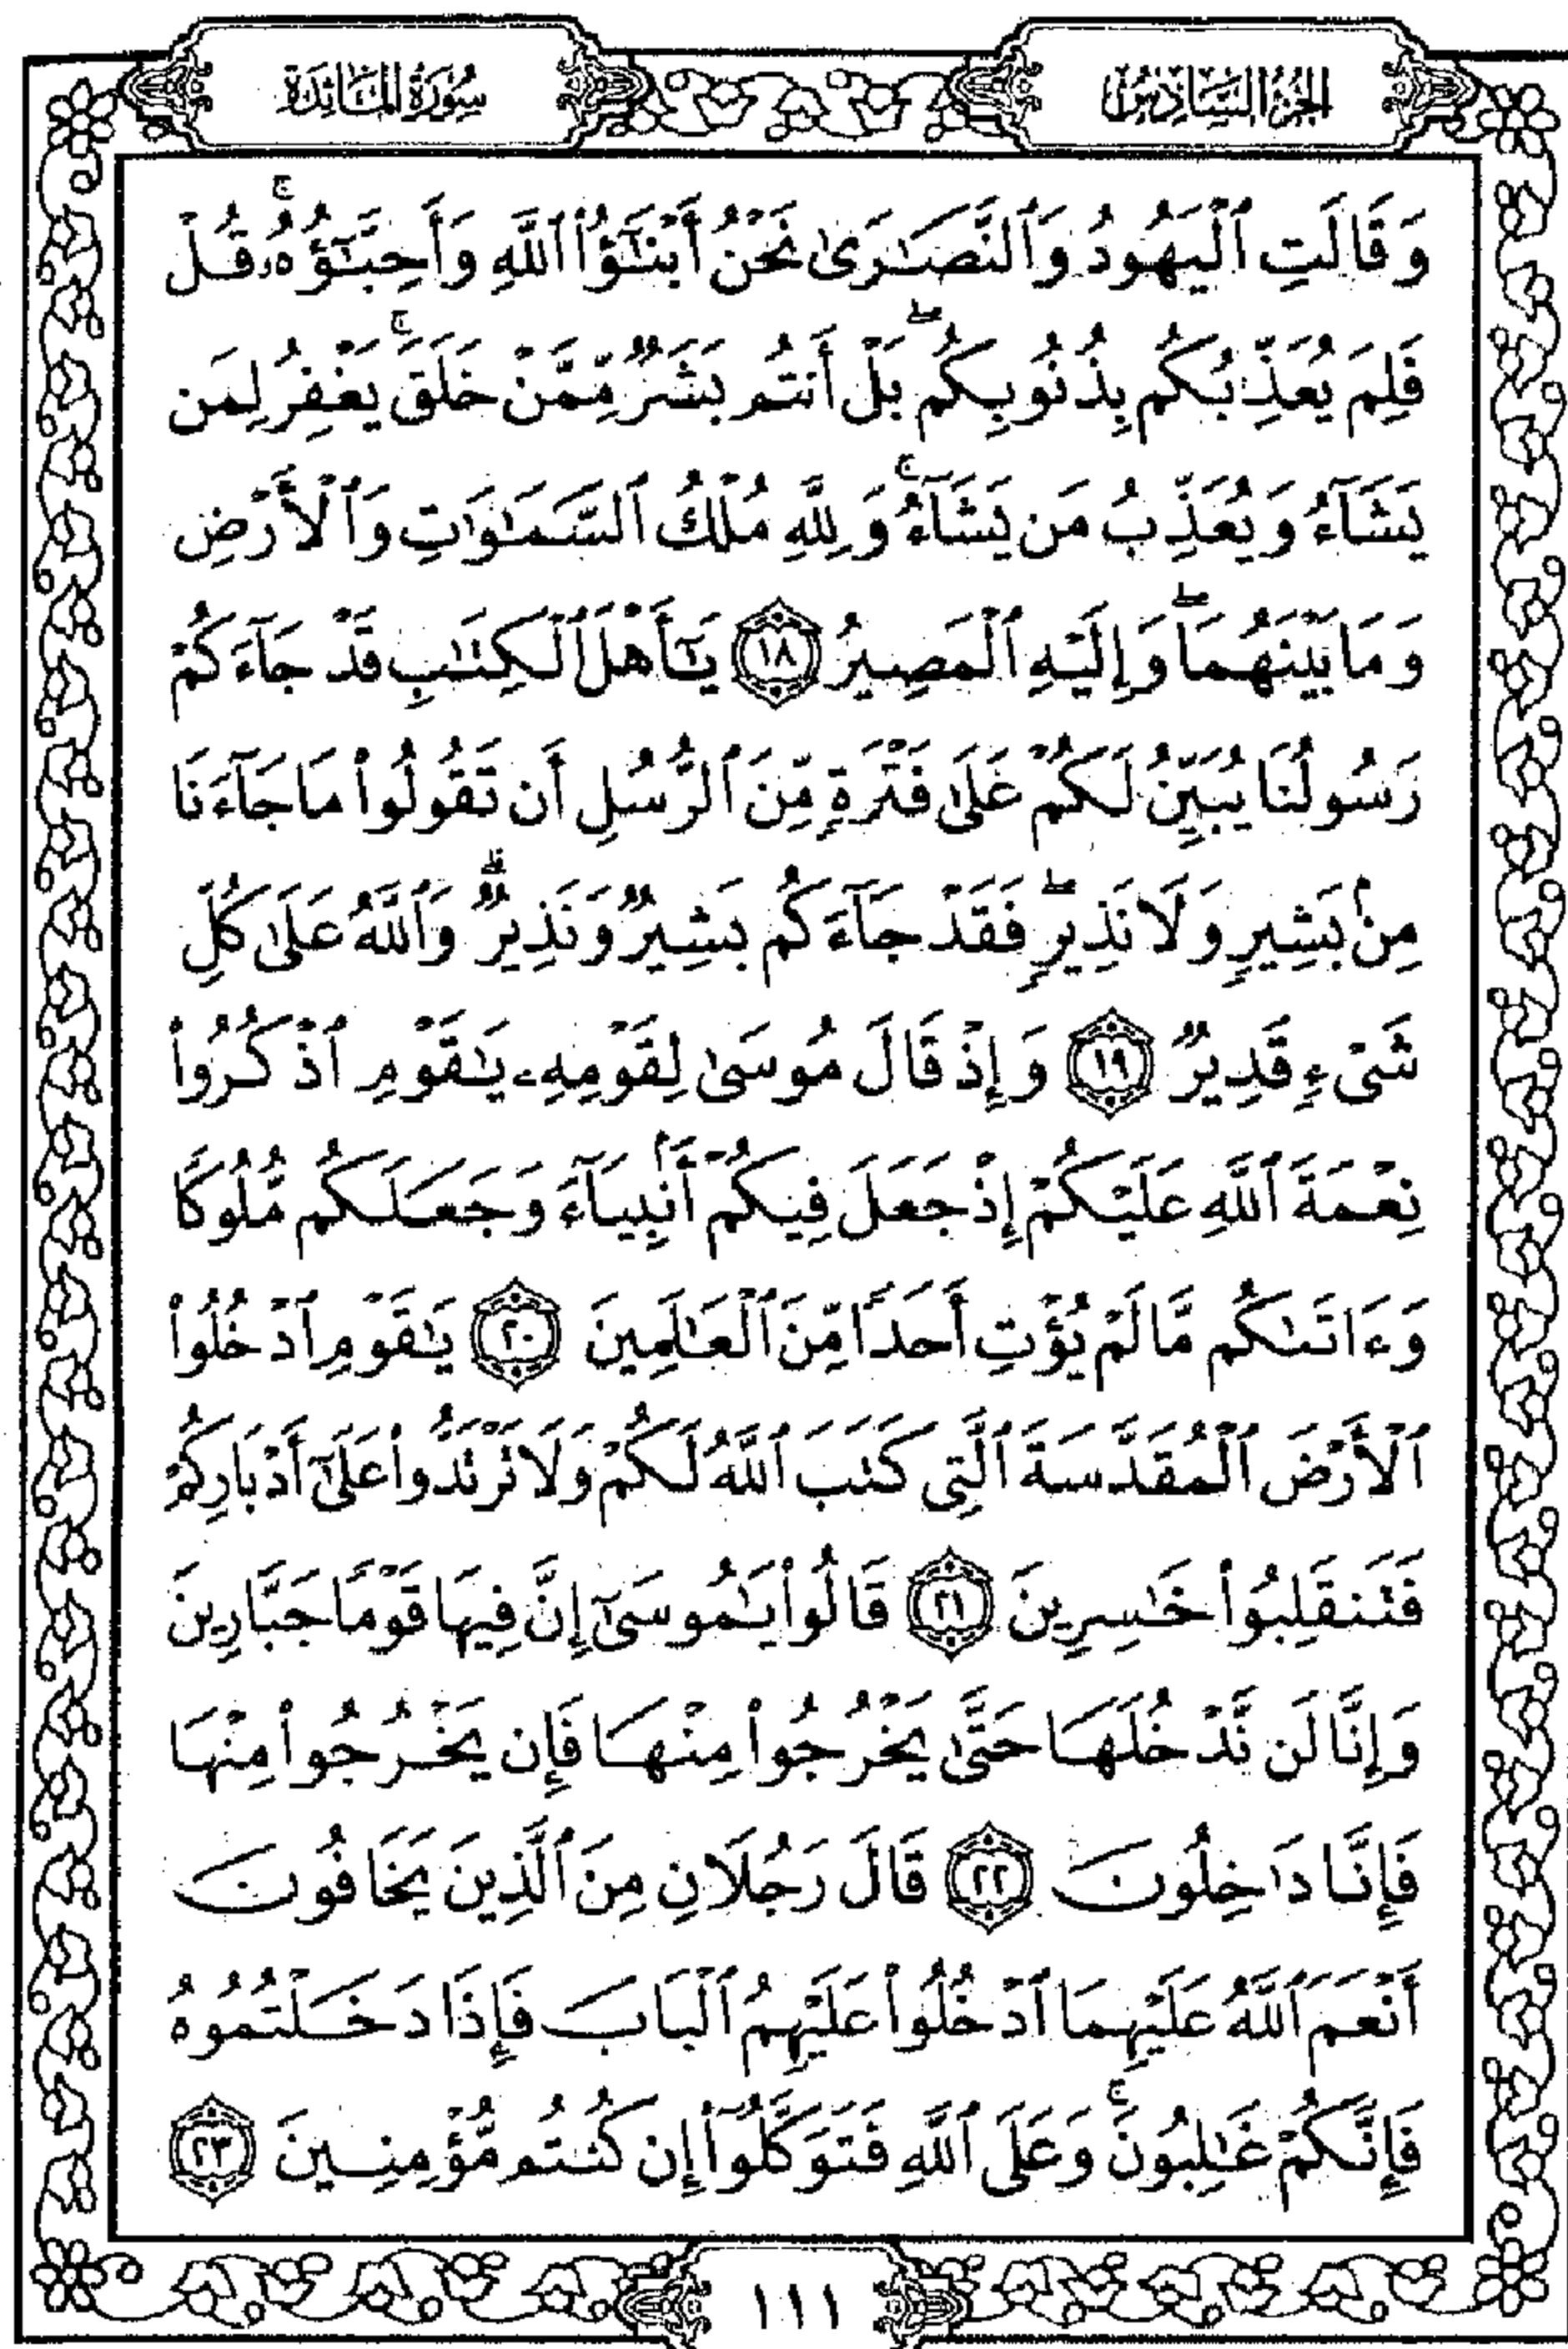 الجزء السادس
سورة المائدة
وَقَالَتِ ٱلْيَهُودُ وَٱلنَّصَـٰرَىٰ نَحْنُ أَبْنَـٰٓؤُا۟ ٱللَّهِ وَأَحِبَّـٰٓؤُهُۥ ۚ قُلْ
فَلِمَ يُعَذِّبُكُم بِذُنُوبِكُم ۖ بَلْ أَنتُم بَشَرٌ مِّمَّنْ خَلَقَ ۚ يَغْفِرُ لِمَن
يَشَآءُ وَيُعَذِّبُ مَن يَشَآءُ ۚ وَلِلَّهِ مُلْكُ ٱلسَّمَـٰوَٰتِ وَٱلْأَرْضِ
وَمَا بَيْنَهُمَا ۖ وَإِلَيْهِ ٱلْمَصِيرُ ١٨ يَـٰٓأَهْلَ ٱلْكِتَـٰبِ قَدْ جَآءَكُمْ
رَسُولُنَا يُبَيِّنُ لَكُمْ عَلَىٰ فَتْرَةٍ مِّنَ ٱلرُّسُلِ أَن تَقُولُوا۟ مَا جَآءَنَا
مِنۢ بَشِيرٍ وَلَا نَذِيرٍ ۖ فَقَدْ جَآءَكُم بَشِيرٌ وَنَذِيرٌ ۗ وَٱللَّهُ عَلَىٰ كُلِّ
شَىْءٍ قَدِيرٌ ١٩ وَإِذْ قَالَ مُوسَىٰ لِقَوْمِهِۦ يَـٰقَوْمِ ٱذْكُرُوا۟
نِعْمَةَ ٱللَّهِ عَلَيْكُمْ إِذْ جَعَلَ فِيكُمْ أَنۢبِيَآءَ وَجَعَلَكُم مُّلُوكًا
وَءَاتَىٰكُم مَّا لَمْ يُؤْتِ أَحَدًا مِّنَ ٱلْعَـٰلَمِينَ ٢٠ يَـٰقَوْمِ ٱدْخُلُوا۟
ٱلْأَرْضَ ٱلْمُقَدَّسَةَ ٱلَّتِى كَتَبَ ٱللَّهُ لَكُمْ وَلَا تَرْتَدُّوا۟ عَلَىٰٓ أَدْبَارِكُمْ
فَتَنقَلِبُوا۟ خَـٰسِرِينَ ٢١ قَالُوا۟ يَـٰمُوسَىٰٓ إِنَّ فِيهَا قَوْمًا جَبَّارِينَ
وَإِنَّا لَن نَّدْخُلَهَا حَتَّىٰ يَخْرُجُوا۟ مِنْهَا فَإِن يَخْرُجُوا۟ مِنْهَا
فَإِنَّا دَٰخِلُونَ ٢٢ قَالَ رَجُلَانِ مِنَ ٱلَّذِينَ يَخَافُونَ
أَنْعَمَ ٱللَّهُ عَلَيْهِمَا ٱدْخُلُوا۟ عَلَيْهِمُ ٱلْبَابَ فَإِذَا دَخَلْتُمُوهُ
فَإِنَّكُمْ غَـٰلِبُونَ ۚ وَعَلَى ٱللَّهِ فَتَوَكَّلُوٓا۟ إِن كُنتُم مُّؤْمِنِينَ ٢٣
١١١